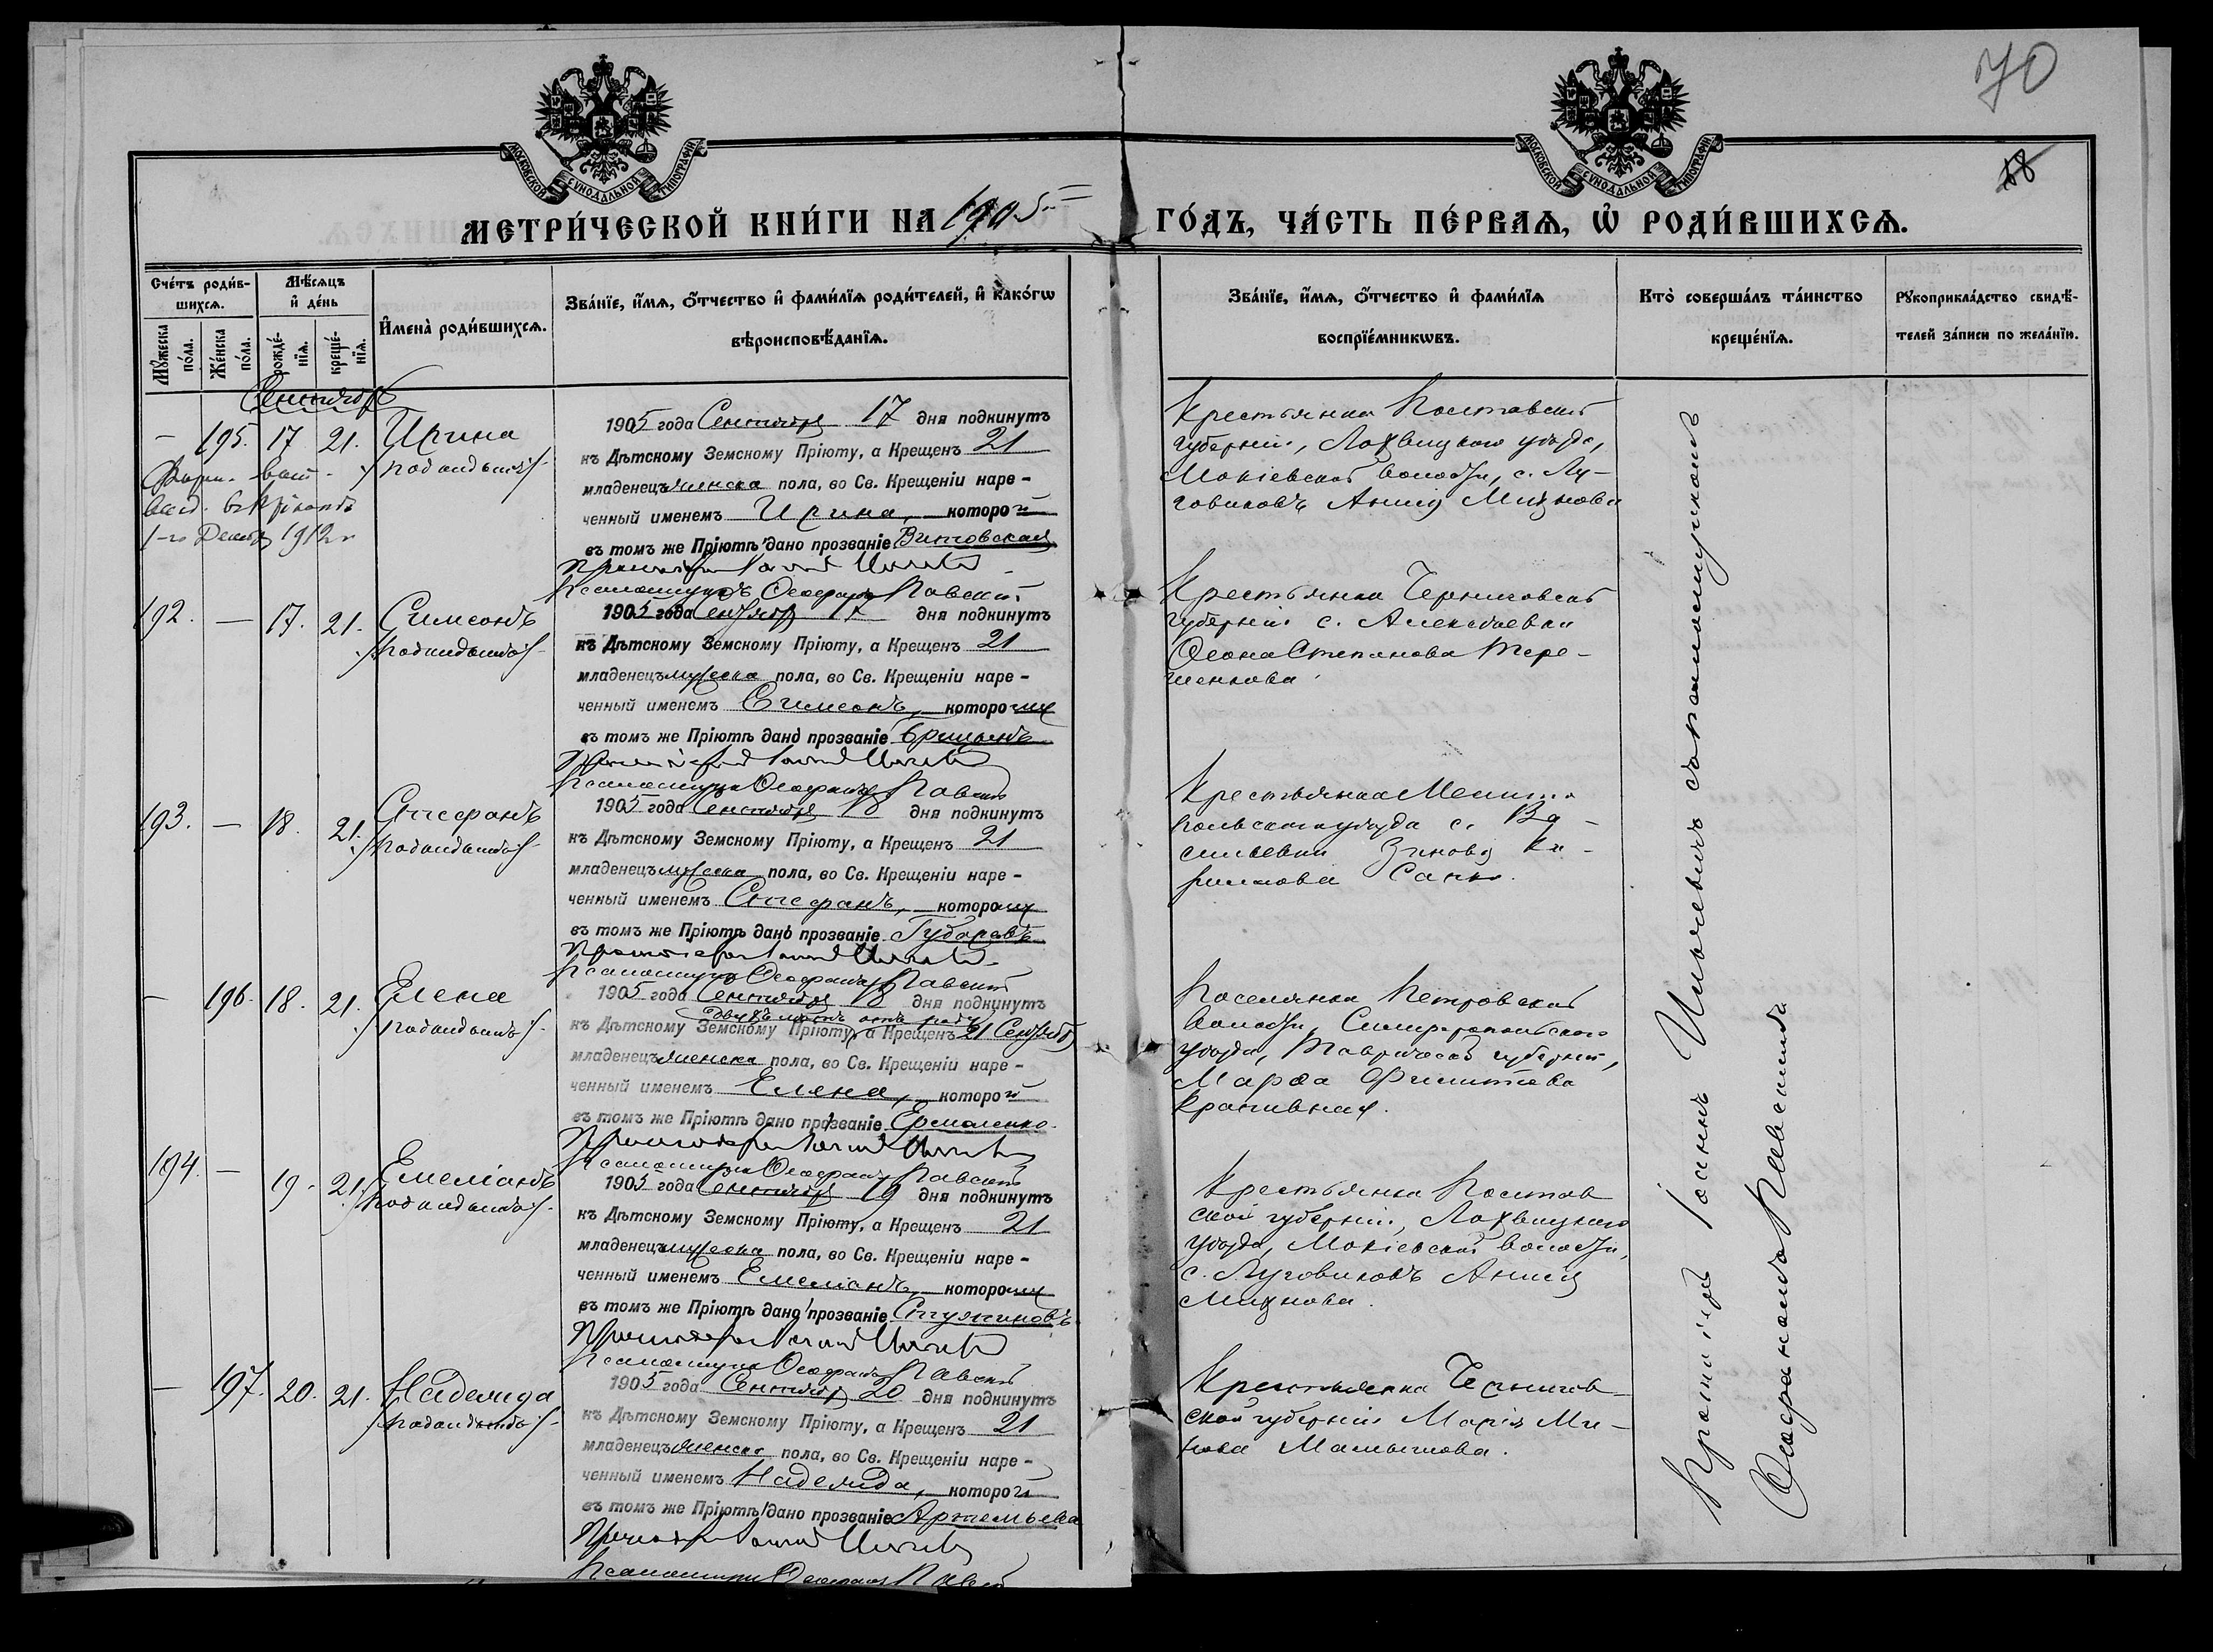 70
58
МОСКОВСКОЙ СУНОДАЛЬНОЙ ТИПОГРАФІИ
МОСКОВСКОЙ СУНОДАЛЬНОЙ ТИПОГРАФІИ
МЕТРИ́ЧЕСКОЙ КНИ́ГИ НА 1905 ГО́ДЪ, ЧА́СТЬ ПЕ́РВАѦ, Ѡ҆ РОДИ́ВШИХСѦ.
Сче́тъ роди́в-
шихсѧ.
Мꙋ́жеска по́ла.
Же́нска по́ла.
Мѣ́сѧцъ
и҆ де́нь
рожде́-
нїѧ.
креще́-
нїѧ.
И҆мена̀ роди́вшихсѧ.
Зва́нїе, и҆́мѧ, ѻ҆́тчество и҆ фами́лїѧ роди́телей, и҆ како́гѡ
вѣроисповѣ́данїѧ.
Зва́нїе, и҆́мѧ, ѻ҆́тчество и҆ фами́лїѧ
воспрїе́мникѡвъ.
Кто̀ соверша́лъ та́инство
креще́нїѧ.
Рꙋкоприкла́дство свидѣ́-
телей за́писи по жела́нїю.
Сентябрь
– 195. 17 21. Ирина
/подкидышъ/
1-го Декабр 1912 г
1905 года Сентября 17 дня подкинутъ
къ Дѣтскому Земскому Пріюту, а Крещенъ 21
младенецъ женска пола, во Св. Крещеніи наре-
ченный именемъ Ирина, которой
въ томъ же Пріютѣ дано прозваніе Витовская
Псаломщикъ Ѳеофанъ Павскій
Крестьянка Полтавской
губерніи, Лохвицкаго уѣзда,
Мокіевской волости, с. Лу-
говиковъ Анна Михнова
192. – 17. 21. Симеонъ
/подкидышъ/
1905 года Сентября 17 дня подкинутъ
къ Дѣтскому Земскому Пріюту, а Крещенъ 21
младенецъ мужеска пола, во Св. Крещеніи наре-
ченный именемъ Симеонъ, которому
въ томъ же Пріютѣ дано прозваніе
Псаломщикъ Ѳеофанъ Павскій
Крестьянка Черниговской
губерніи с. Алексѣевки
Ѳеона Степанова Тере-
щенкова
193. – 18. 21. Стефанъ
/подкидышъ/
1905 года Сентября 18 дня подкинутъ
къ Дѣтскому Земскому Пріюту, а Крещенъ 21
младенецъ мужеска пола, во Св. Крещеніи наре-
ченный именемъ Стефанъ, которому
въ томъ же Пріютѣ дано прозваніе Губаревъ
Псаломщикъ Ѳеофанъ Павскій
Крестьянка Мелито-
польскаго уѣзда с. Ва-
сильевки Ки-
риллова
– 196. 18. 21. Елена
/подкидышъ/
1905 года Сентября 18 дня подкинутъ
къ Дѣтскому Земскому Пріюту, а Крещенъ 21 Сентября
младенецъ женска пола, во Св. Крещеніи наре-
ченный именемъ Елена, которой
въ томъ же Пріютѣ дано прозваніе Ермоленко
Псаломщикъ Ѳеофанъ Павскій
Поселянка Петровской
волости, Симферопольскаго
уѣзда, Таврической губерніи,
Марѳа Филиппова
Крапивная.
194. – 19. 21. Емеліанъ
/подкидышъ/
1905 года Сентября 19 дня подкинутъ
къ Дѣтскому Земскому Пріюту, а Крещенъ 21
младенецъ мужеска пола, во Св. Крещеніи наре-
ченный именемъ Емеліанъ, которому
въ томъ же Пріютѣ дано прозваніе Стужиновъ
Псаломщикъ Ѳеофанъ Павскій
Крестьянка Полтав
ской губерніи, Лохвицкаго
уѣзда, Мокіевской волости,
с. Луговиковъ Анна
Михнова.
– 197. 20. 21. Надежда
/подкидышъ/
1905 года Сентября 20 дня подкинутъ
къ Дѣтскому Земскому Пріюту, а Крещенъ 21
младенецъ женска пола, во Св. Крещеніи наре-
ченный именемъ Надежда, которой
въ томъ же Пріютѣ дано прозваніе Артемьева
Псаломщикъ Ѳеофанъ Павскій
Крестьянка Чернигов-
ской губерніи Марія Ми-
нова Малышова.
Протоіерей Іоаннъ съ псаломщикомъ
Ѳеофаномъ Павскимъ